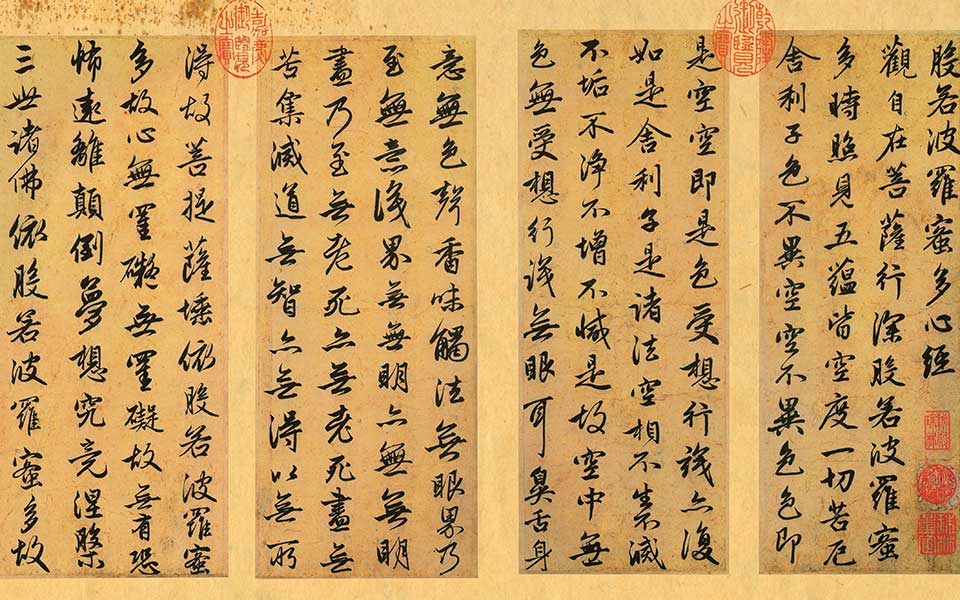 般若波羅蜜多心經
觀自在菩薩行深般若波羅蜜
多時照見五蘊皆空度一切苦厄
舍利子色不異空空不異色色即
是空空即是色受想行識亦復
如是舍利子是諸法空相不生不滅
不垢不淨不增不減是故空中無
色無受想行識無眼耳鼻舌身
意無色聲香味觸法無眼界乃
至無意識界無無明亦無無明
盡乃至無老死亦無老死盡無
苦集滅道無智亦無得以無所
得故菩提薩埵依般若波羅蜜
多故心無罣礙無罣礙故無有恐
怖遠離顛倒夢想究竟涅槃
三世諸佛依般若波羅蜜多故
乾隆御覽之寶
嘉慶御覽之寶